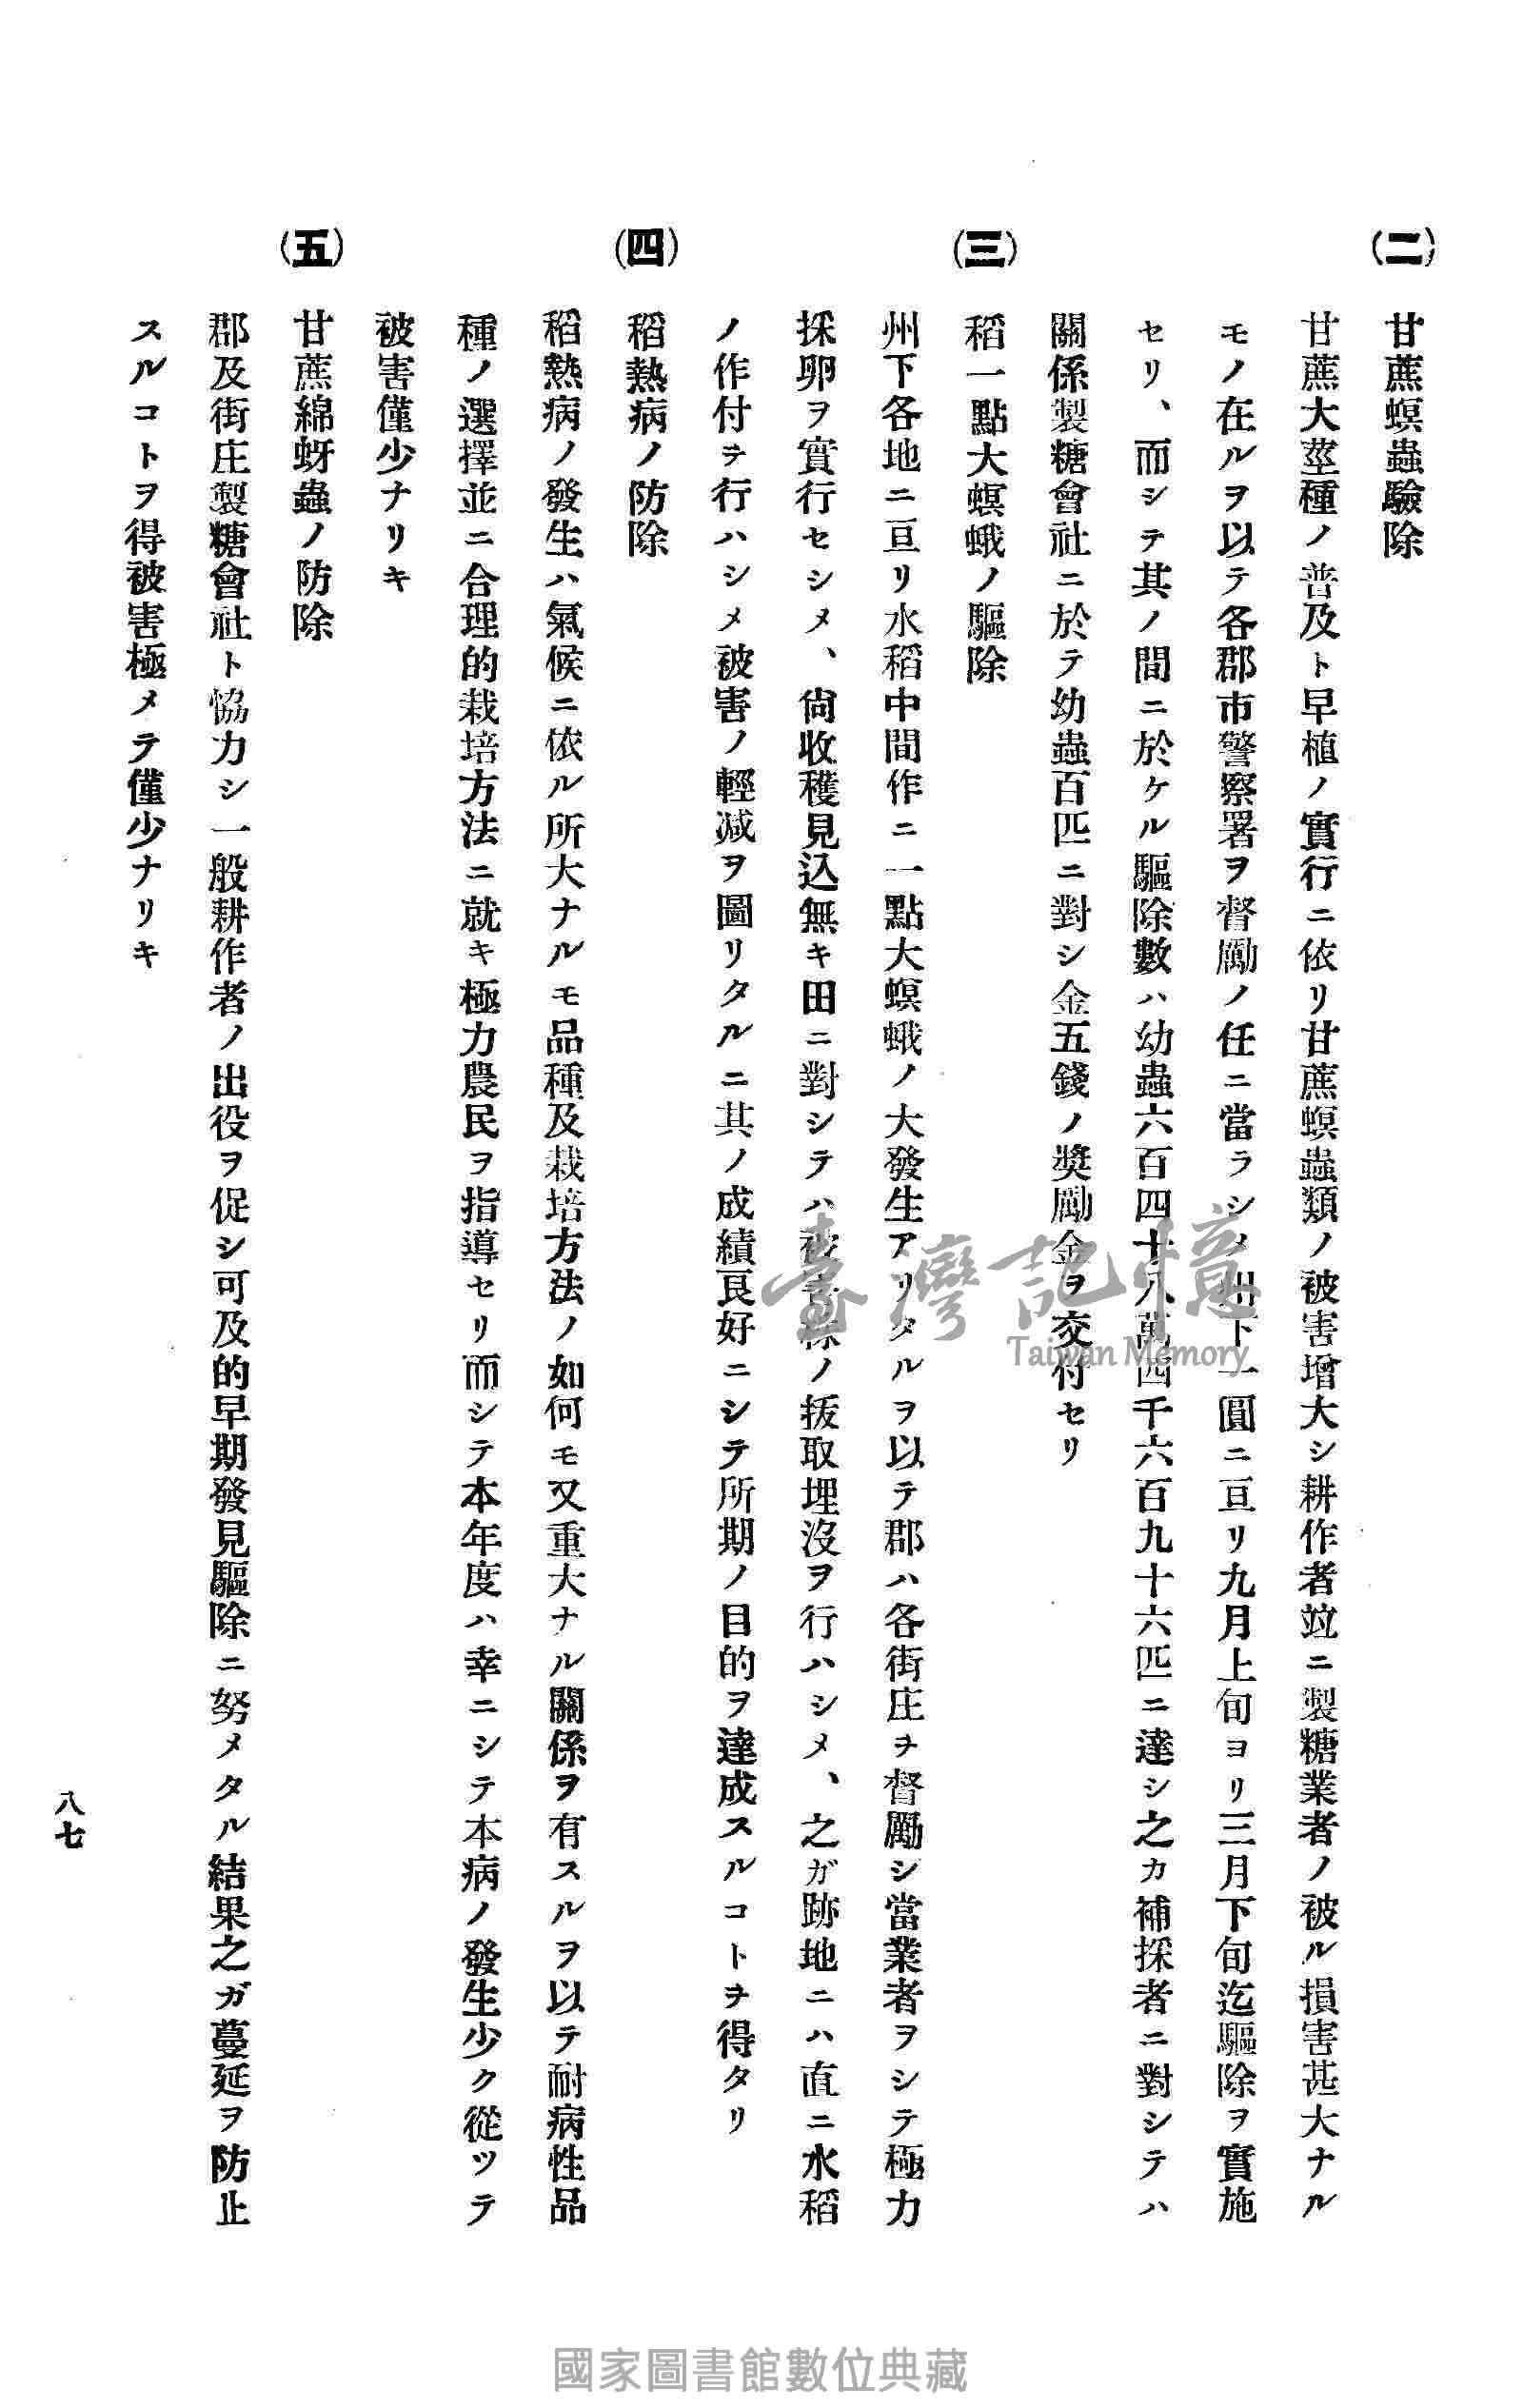 (二) 甘蔗螟蟲驗除
甘蔗大莖種ノ普及ト早植ノ實行ニ依リ甘蔗螟蟲類ノ被害增大シ耕作者竝ニ製糖業者ノ被ル損害甚大ナル
モノ在ルヲ以テ各郡市警察署ヲ督勵ノ任ニ當ラシメ州下一圓ニ亘リ九月上旬ヨリ三月下旬迄驅除ヲ實施
セリ、而シテ其ノ間ニ於ケル驅除數ハ幼蟲六百四十八萬四千六百九十六匹ニ達シ之カ補採者ニ對シテハ
關係製糖會社ニ於テ幼蟲百匹ニ對シ金五錢ノ奬勵金ヲ交付セリ
(三) 稻一點大螟蛾ノ驅除
州下各地ニ亘リ水稻中間作ニ一點大螟蛾ノ大發生アリタルヲ以テ郡ハ各街庄ヲ督勵シ當業者ヲシテ極力
採卵ヲ實行セシメ、尙收穫見込無キ田ニ對シテハ被害株ノ拔取埋沒ヲ行ハシメ、之ガ跡地ニハ直ニ水稻
ノ作付ヲ行ハシメ被害ノ輕減ヲ圖リタルニ其ノ成績良好ニシテ所期ノ目的ヲ達成スルコトヲ得タリ
(四) 稻熱病ノ防除
稻熱病ノ發生ハ氣候ニ依ル所大ナルモ品種及栽培方法ノ如何モ又重大ナル關係ヲ有スルヲ以テ耐病性品
種ノ選擇並ニ合理的栽培方法ニ就キ極力農民ヲ指導セリ而シテ本年度ハ幸ニシテ本病ノ發生少ク從ツテ
被害僅少ナリキ
(五) 甘蔗綿蚜蟲ノ防除
郡及街庄製糖會社ト恊力シ一般耕作者ノ出役ヲ促シ可及的早期發見驅除ニ努メタル結果之ガ蔓延ヲ防止
スルコトヲ得被害極メテ僅少ナリキ
八七
臺灣記憶
Taiwan Memory
國家圖書館數位典藏